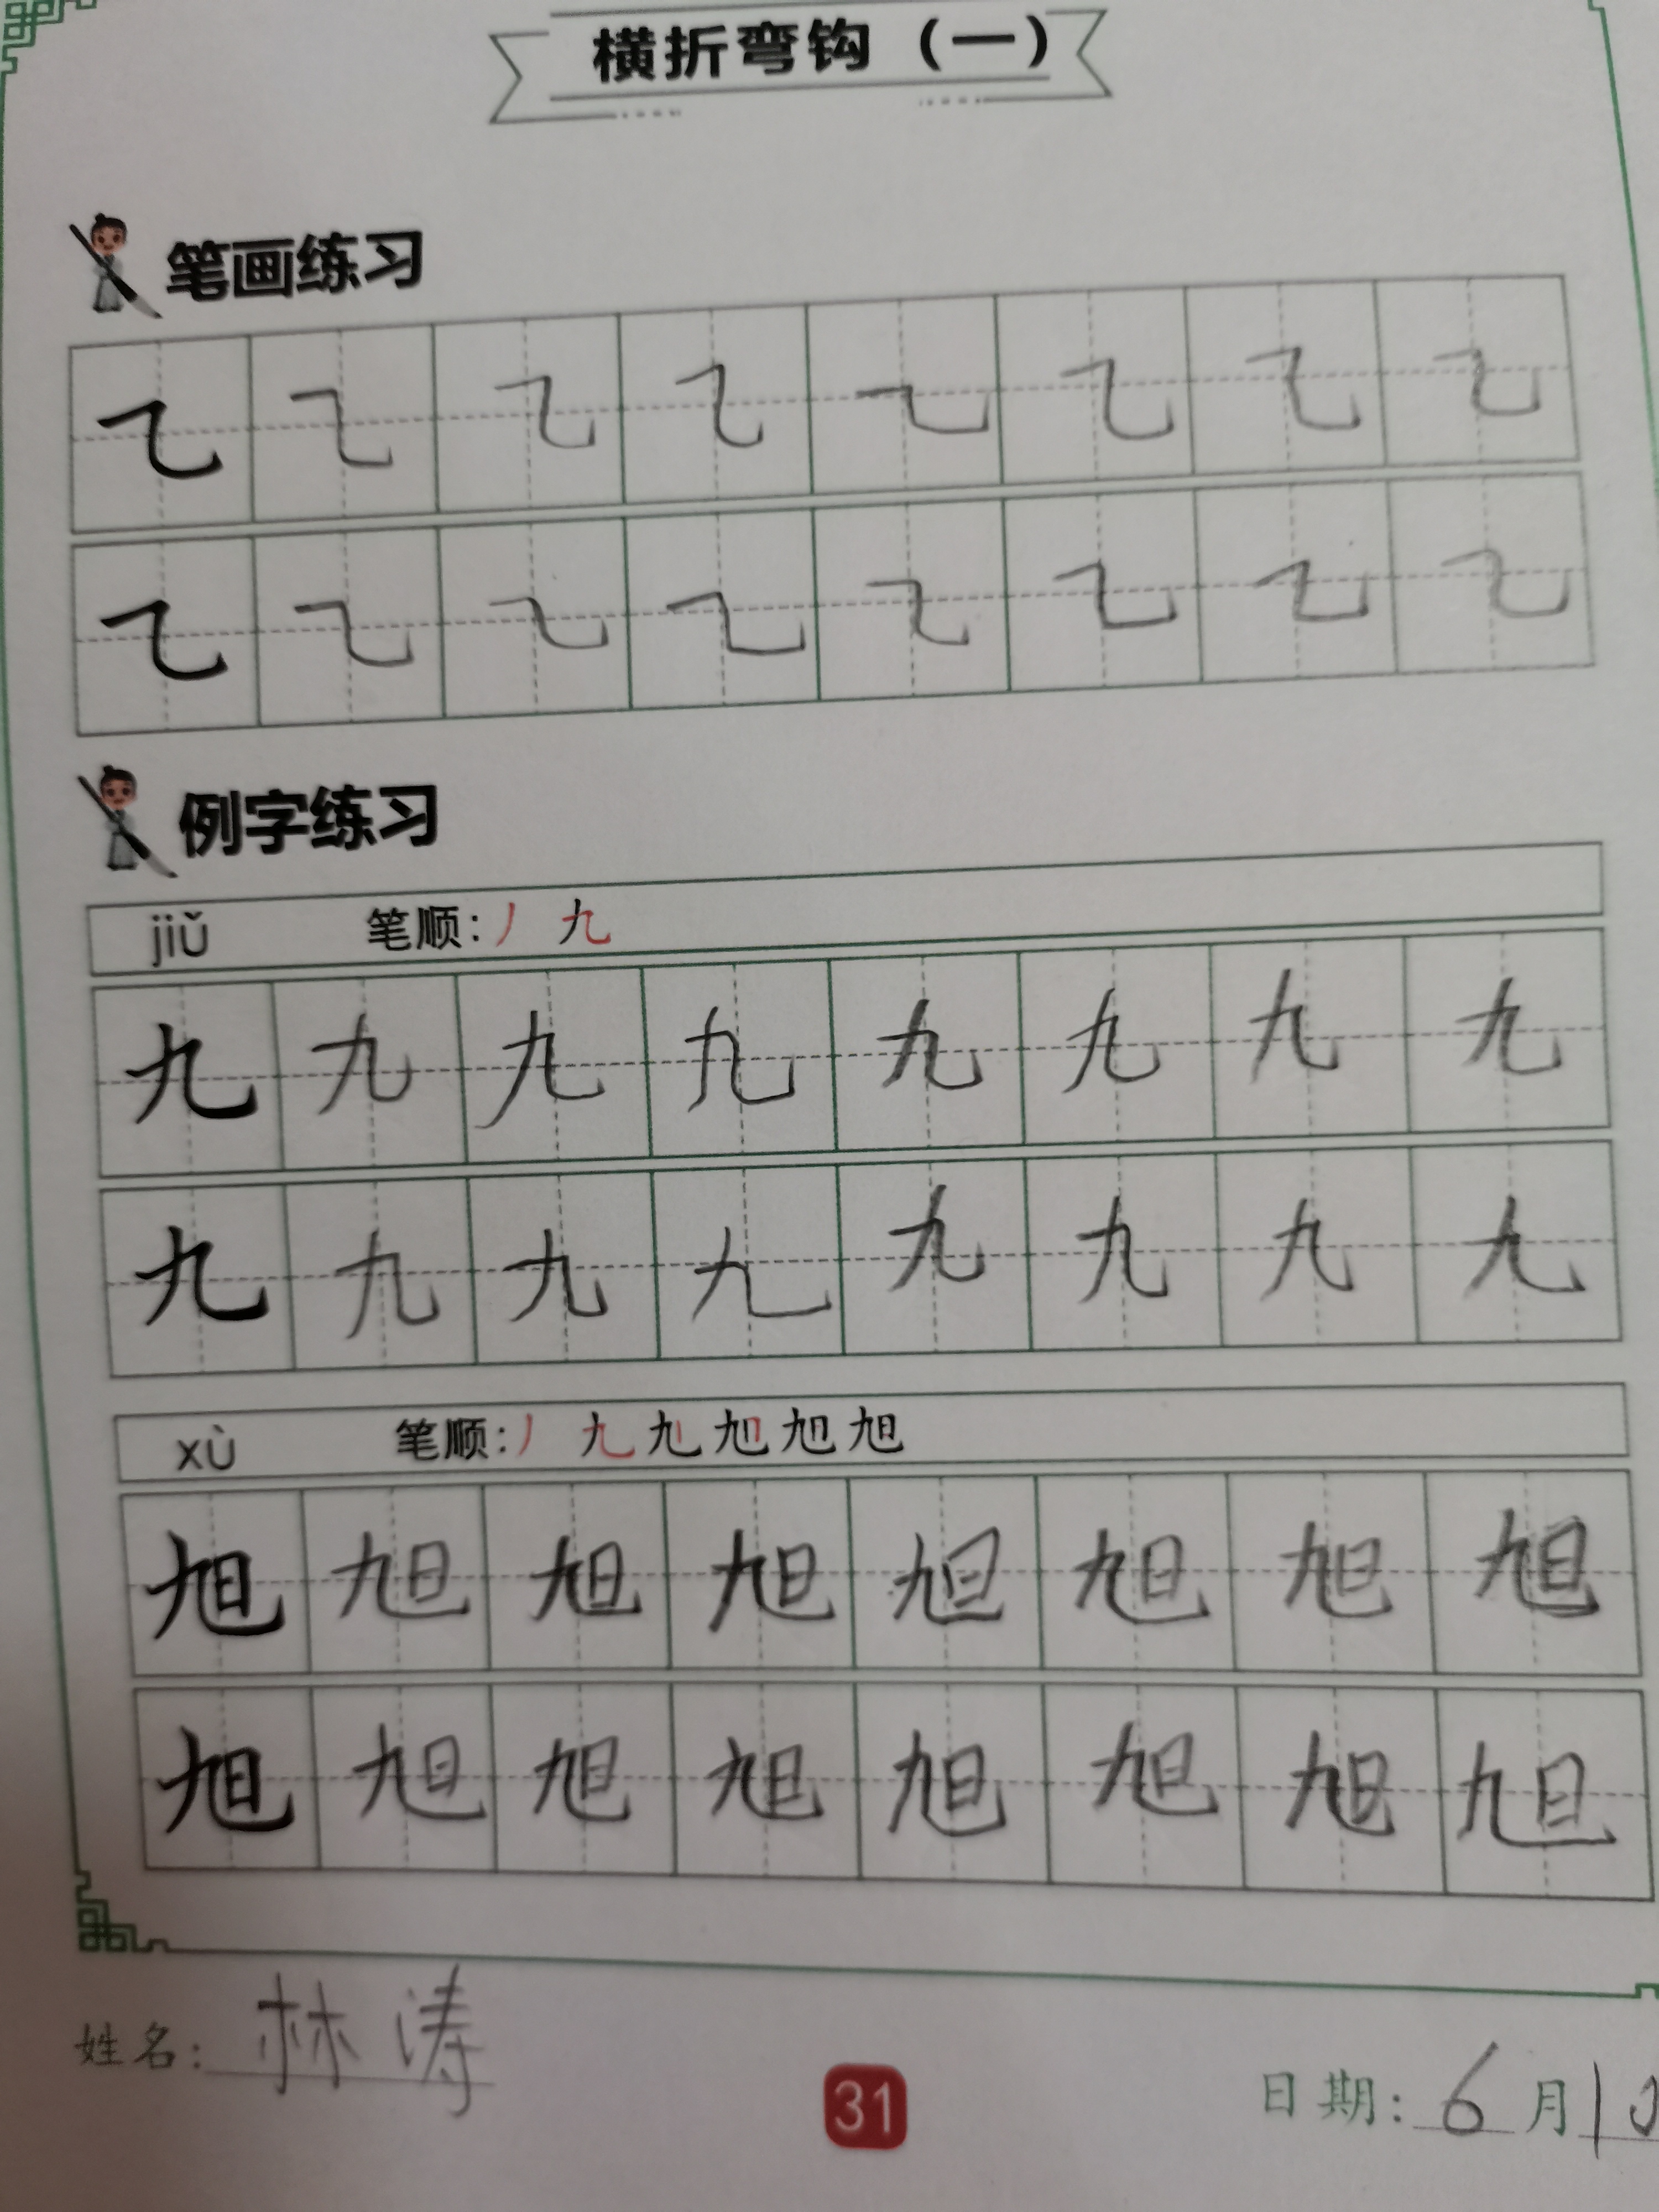 横折弯钩（一）
笔画练习
乙 乙 乙 乙 乙 乙 乙 乙
乙 乙 乙 乙 乙 乙 乙 乙
例字练习
jiǔ 笔顺：丿 九
九 九 九 九 九 九 九 九
九 九 九 九 九 九 九 九
xù 笔顺：丿 九 旭 旭 旭 旭
旭 旭 旭 旭 旭 旭 旭 旭
旭 旭 旭 旭 旭 旭 旭 旭
姓名：林涛
31
日期：6月1